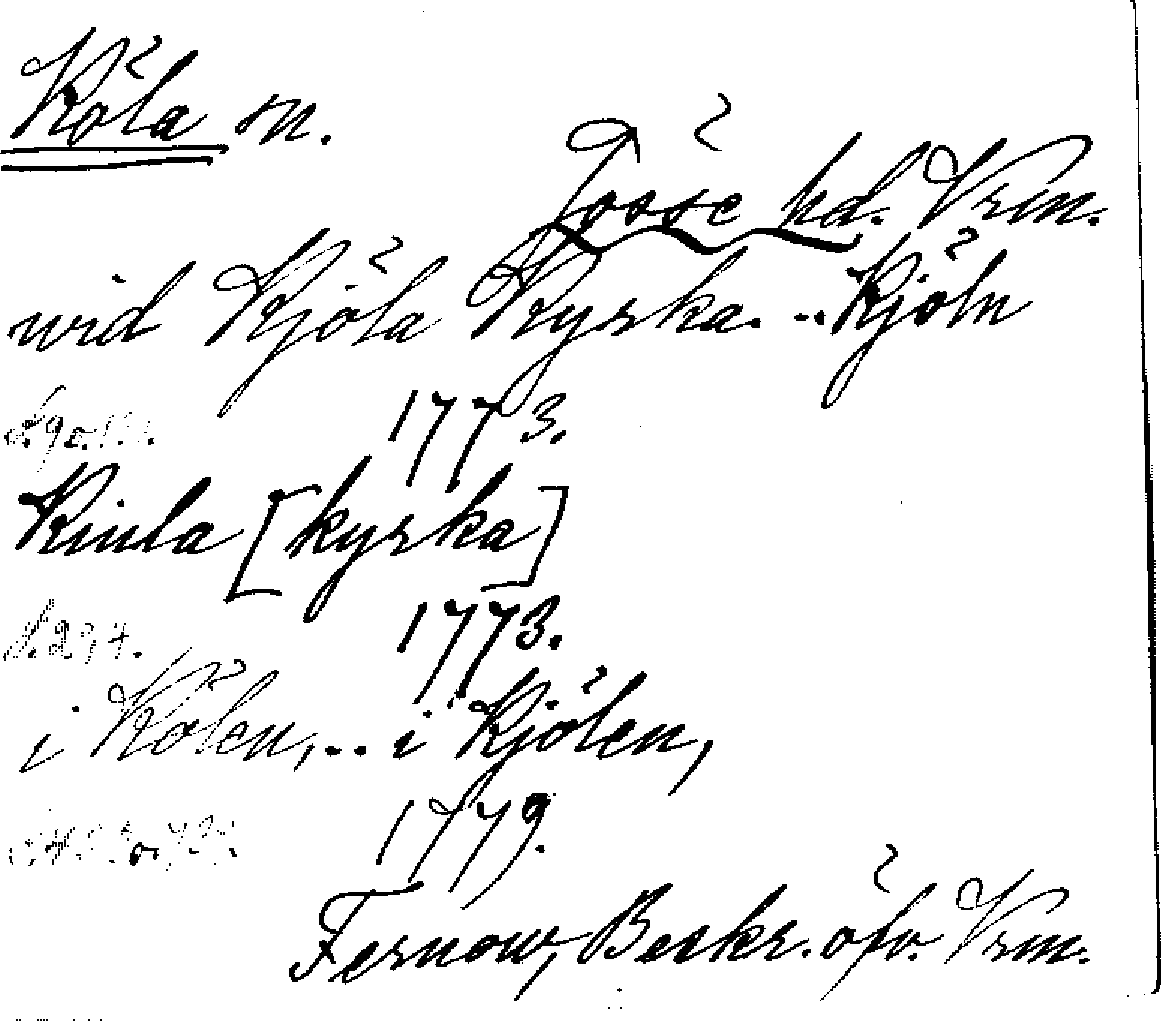 Köla sn.
Jösse hd. Vrm.
wid Kjöla Kyrka. .. Kjöln
1773.
Kiula [kyrka]
1773.
S. 274.
i Kölen, .. i Kjölen,
1779.
Fernow, Beskr. öfv. Vrm.